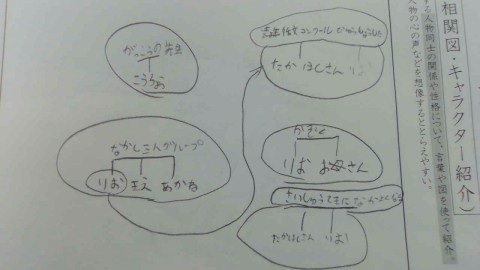 相関図・キャラクター紹介)
する人物同士の関係や性格について、言葉や図を使って紹介。
人物の心の声などを想像するととらえやすい。
がっこうの先生
こうちょ
コンクール
たかはしさん りお
なかよしさんグループ
りお きえ あかね
かぞく
りお お母さん
さいしゅうてきに なかよくなる
たかはしさん りお